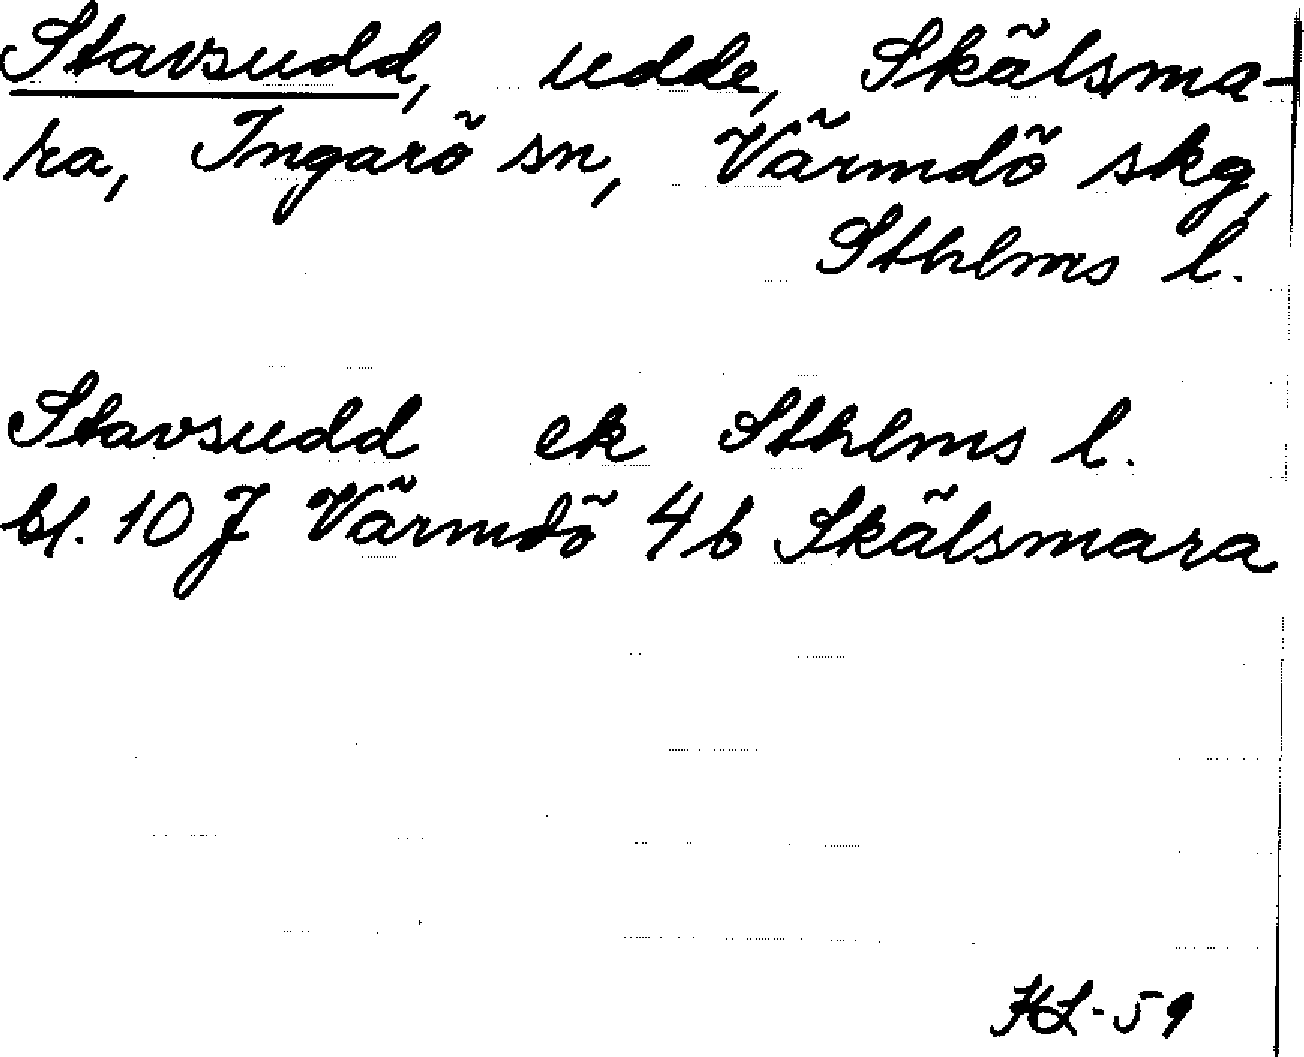 Stavsudd, udde, Skälsma-
ra, Ingarö sn, Värmdö skg,
Sthlms l.
Stavsudd ek Sthlms l.
bl. 10 J Värmdö 4b Skälsmara
HL-59